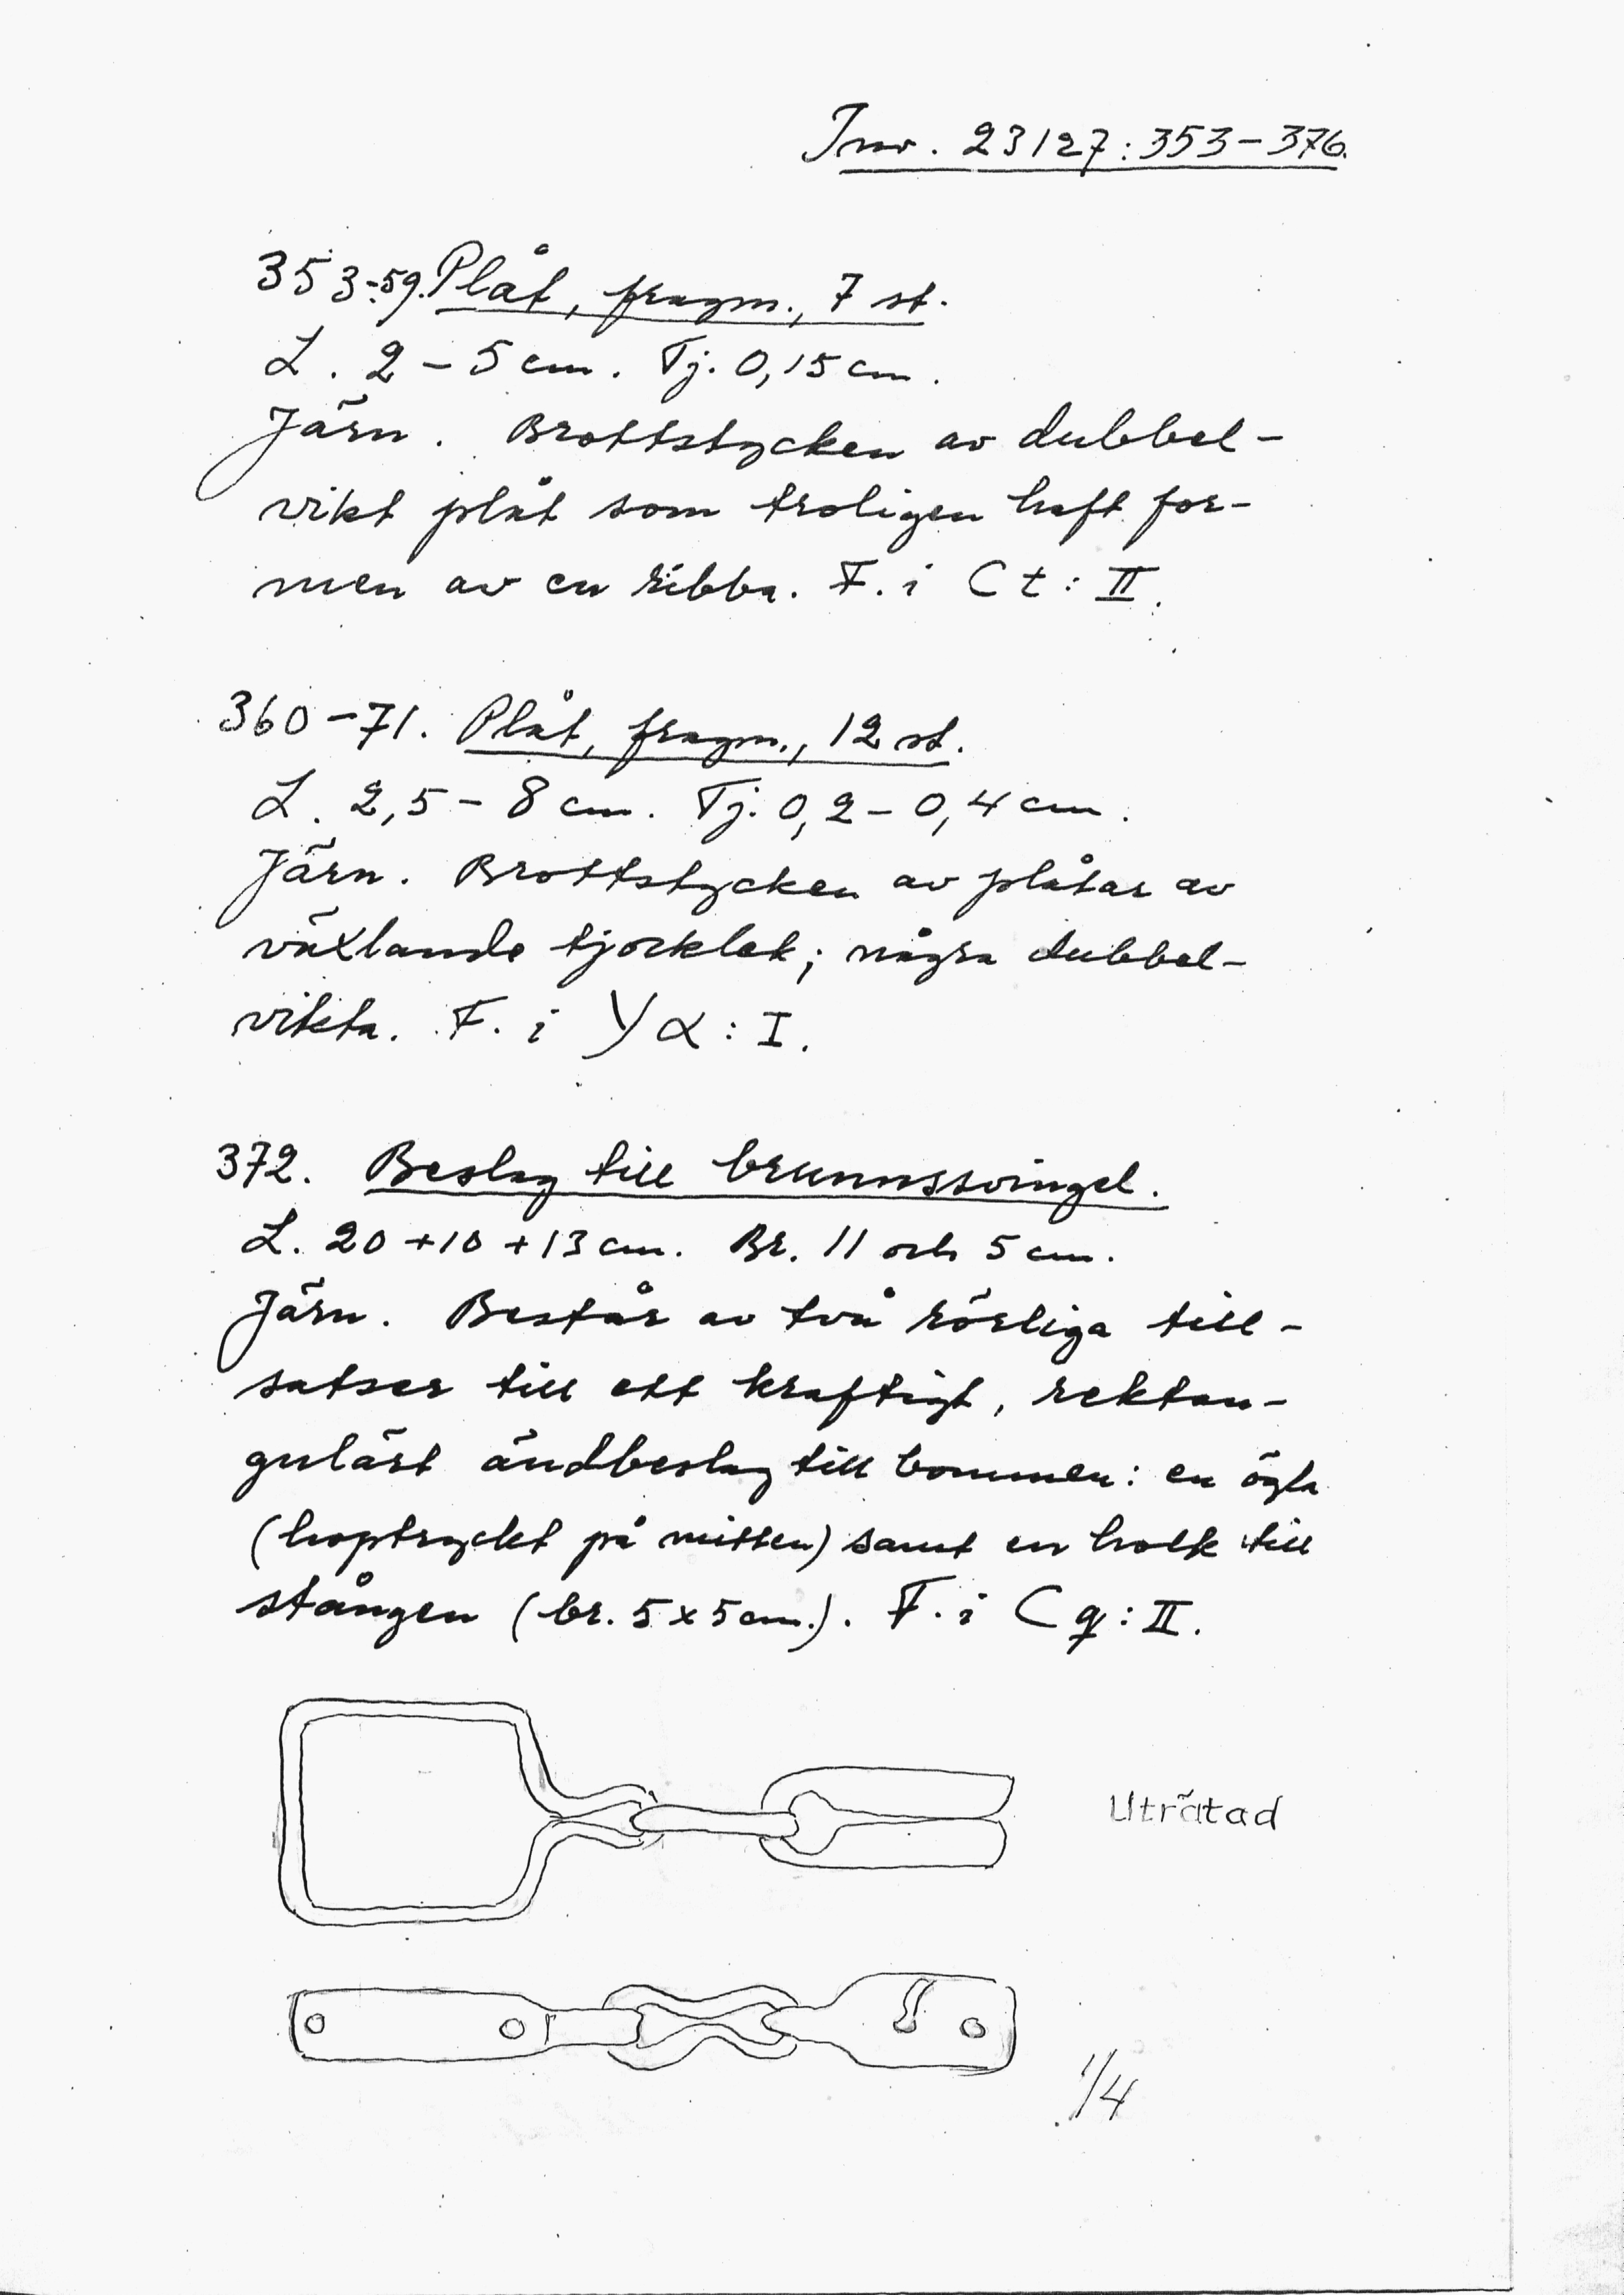 Inv. 23127:353-376.
353-59. Plåt, fragm., 7 st.
L. 2-5 cm. Tj. 0,15 cm.
Järn. Brottstycken av dubbel-
vikt plåt som troligen haft for-
men av en ribba. F. i Ct:II.
360-71. Plåt, fragm., 12 st.
L. 2,5-8 cm. Tj. 0,2-0,4 cm.
Järn. Brottstycken av plåtar av
växlande tjocklek; några dubbel-
vikta. F. i Yα:I.
372. Beslag till brunnssvingel.
L. 20+10+13 cm. Br. 11 och 5 cm.
Järn. Består av två rörliga till-
satser till ett kraftigt, rektan-
gulärt ändbeslag till bommen: en ögla
(hoptryckt på mitten) samt en holk till
stången (br. 5x5 cm.). F. i Cq:II.
Uträtad
1/4